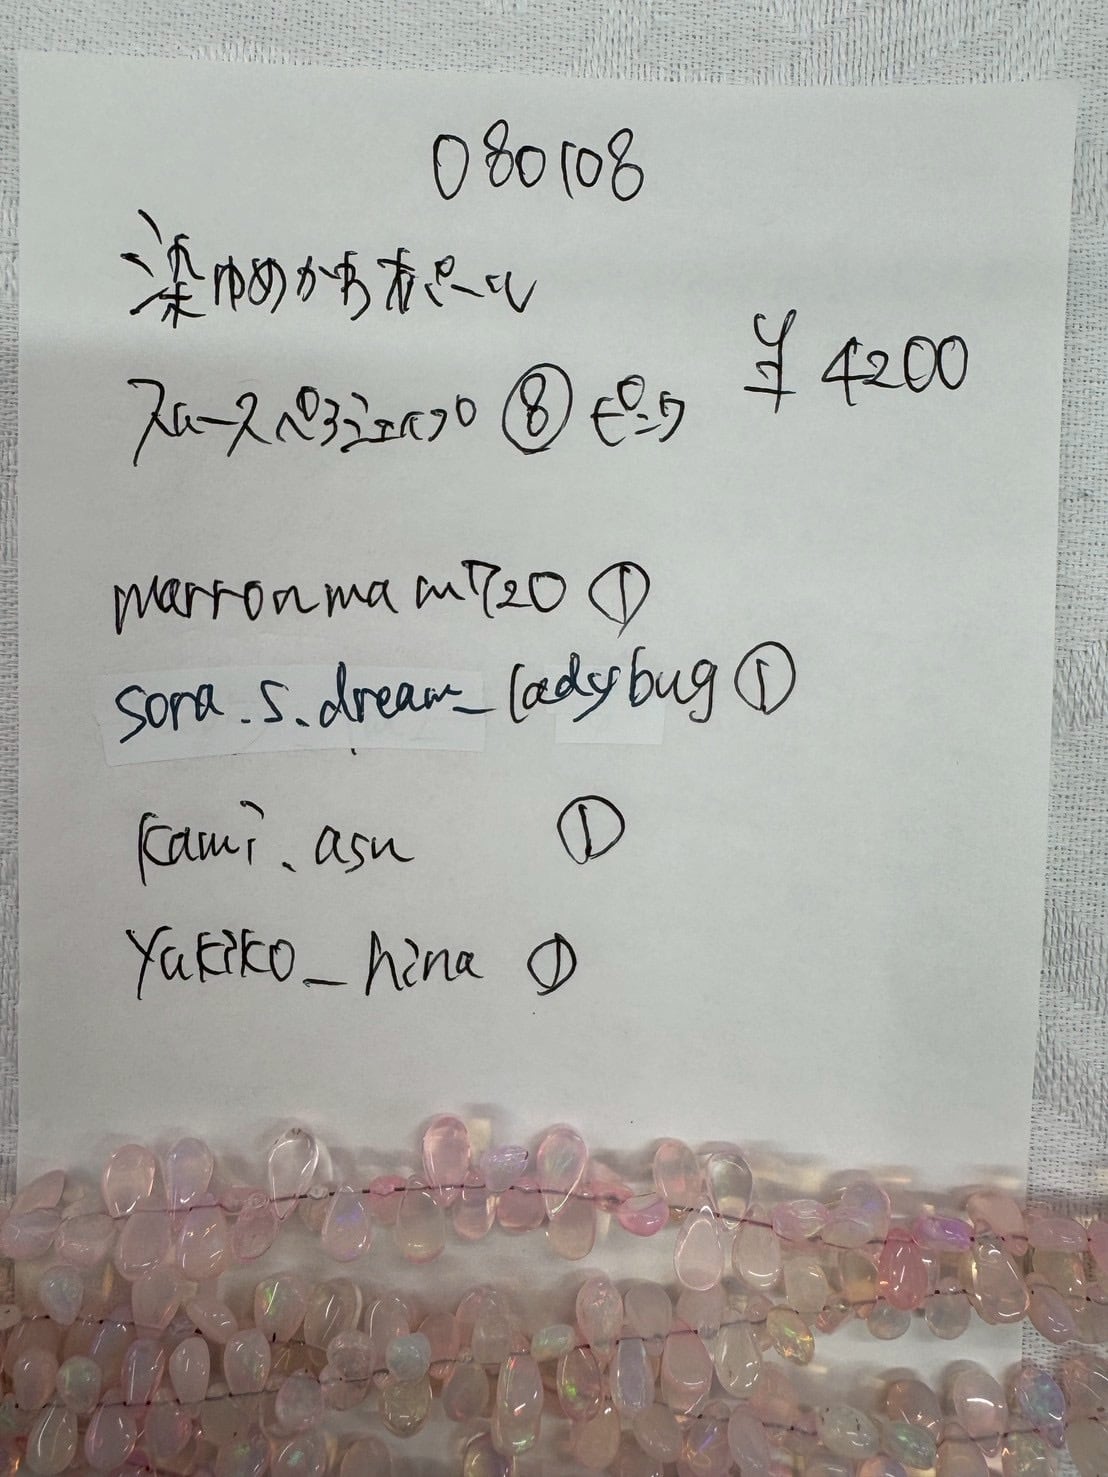 080108
染ゆめかわオパール
¥4200
スムースペアシェイプ⑧ピンク
marronmam720①
sora.s.dream_ladybug①
kami.asu ①
yukiko_hina ①